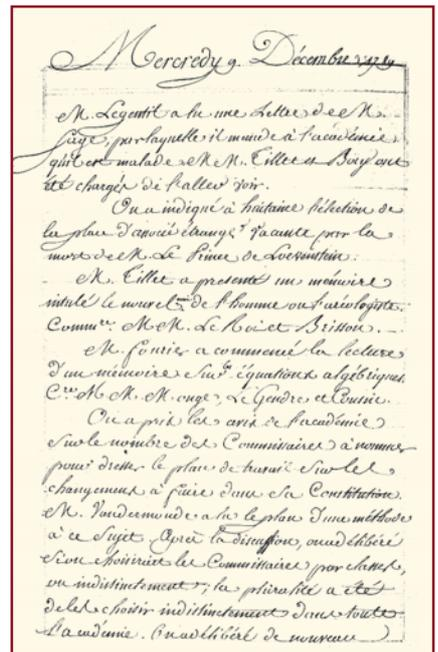 Mercredy 9. Décembre 1789
M. Legentil a lu une Lettre de M.
Sage, par laquelle il mande à l'académie
qu'il est malade. MM. Tillet et Bory ont
été chargés de l'aller voir.
On a indiqué à huitaine l'élection de
la place d'associé étrangr. vacante par la
mort de M. Le Prince de Loewinstein.
M. Tillet a presenté un mémoire
intulé le nouvel de l'homme ou l'aréologiste.
Commres. MM. Le Roi et Brisson.
M. fourier a commencé la lecture
d'un mémoire sur les équations algébriques.
Cres MM. Monge, Le Gendre et Cousin.
On a pris les avis de l'académie
sur le nombre des Commissaires à nommer
pour dresser le plan de travail sur les
changemens à faire dans sa Constitution.
M. Vandermonde a lu le plan d'une méthode
à ce sujet. Après la discussion, on a délibéré
si on choisirait les Commissaires par classes,
ou indistinctement; la pluralité a été
de les choisir indistinctement dans toute
l'académie. On a délibéré de nouveau